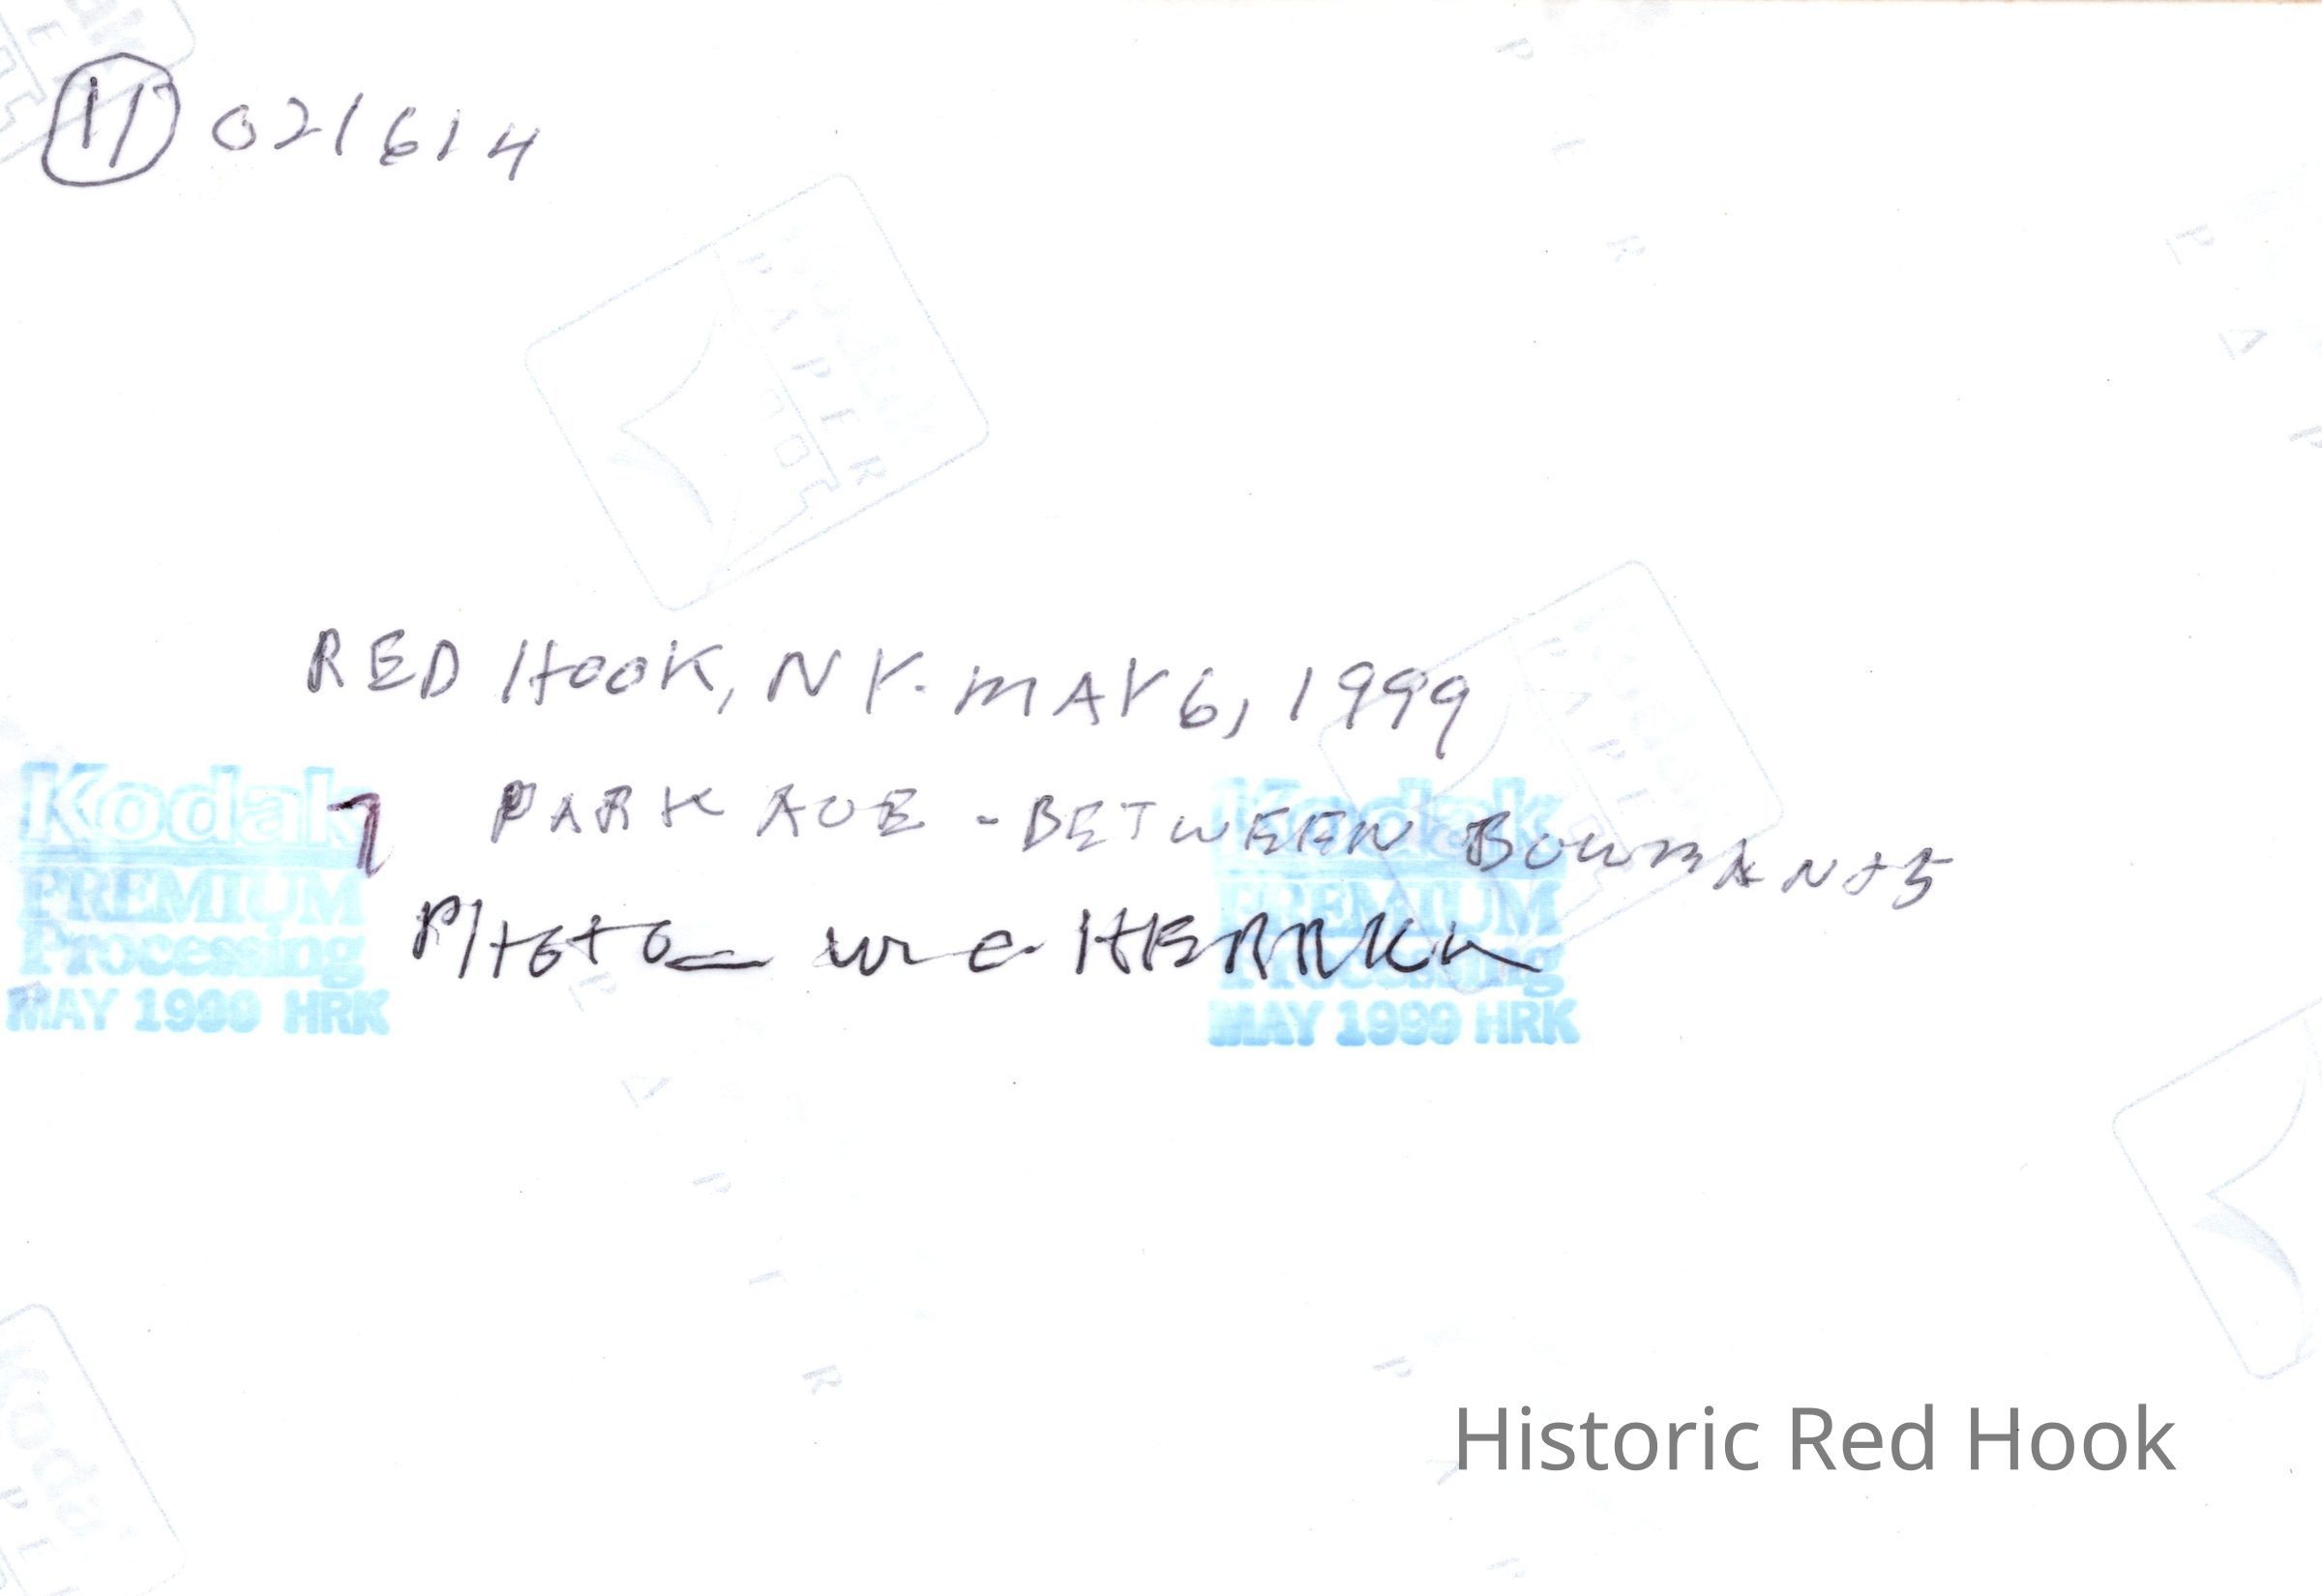 11 021614
RED HOOK, NY. MAY 6, 1999
7 PARK AVE - BETWEEN BOWMAN +5
PHOTO - W C HERRICK
Kodak
PREMIUM
Processing
MAY 1999 HRK
Kodak
PREMIUM
Processing
MAY 1999 HRK
Historic Red Hook